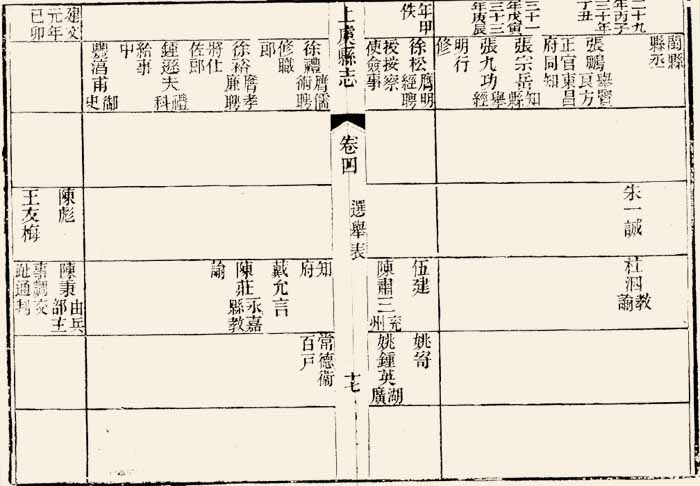 二十九年丙子
三十年丁丑
三十一年戊寅
三十三年庚辰
閩縣縣丞
張鵬舉賢良方
正官東昌府同知
張宗岳知縣
張九功舉經
明行修
朱一誠
杜泗教諭
上虞縣志
卷四
選舉表
十七
年甲佚
徐松膺明經聘
授按察使僉事
徐禮膺儒術聘
修職郎
徐裕膺孝廉聘
將仕佐郎
鍾遜夫禮科
給事中
豐滀甫御史
伍建
陳肅三兗州
知府
戴允言
陳莊永嘉縣教
諭
姚寄
姚鍾英湖廣
常德衛百戶
建文元年己卯
陳彪
王友梅
陳秉由兵部主
事調交趾通判